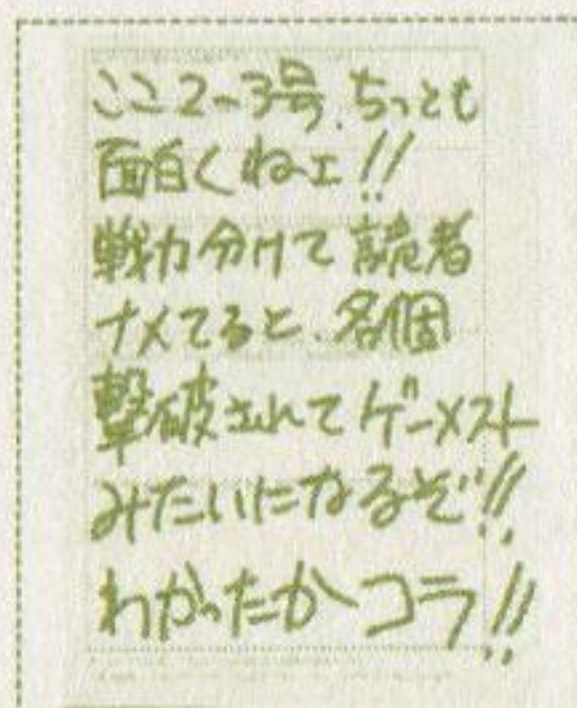 ここ2~3号、ちっとも
面白くねェ!!
戦力分けて読者
ナメてると、各個
撃破されてゲーメスト
みたいになるぞ!!
わかったかコラ!!